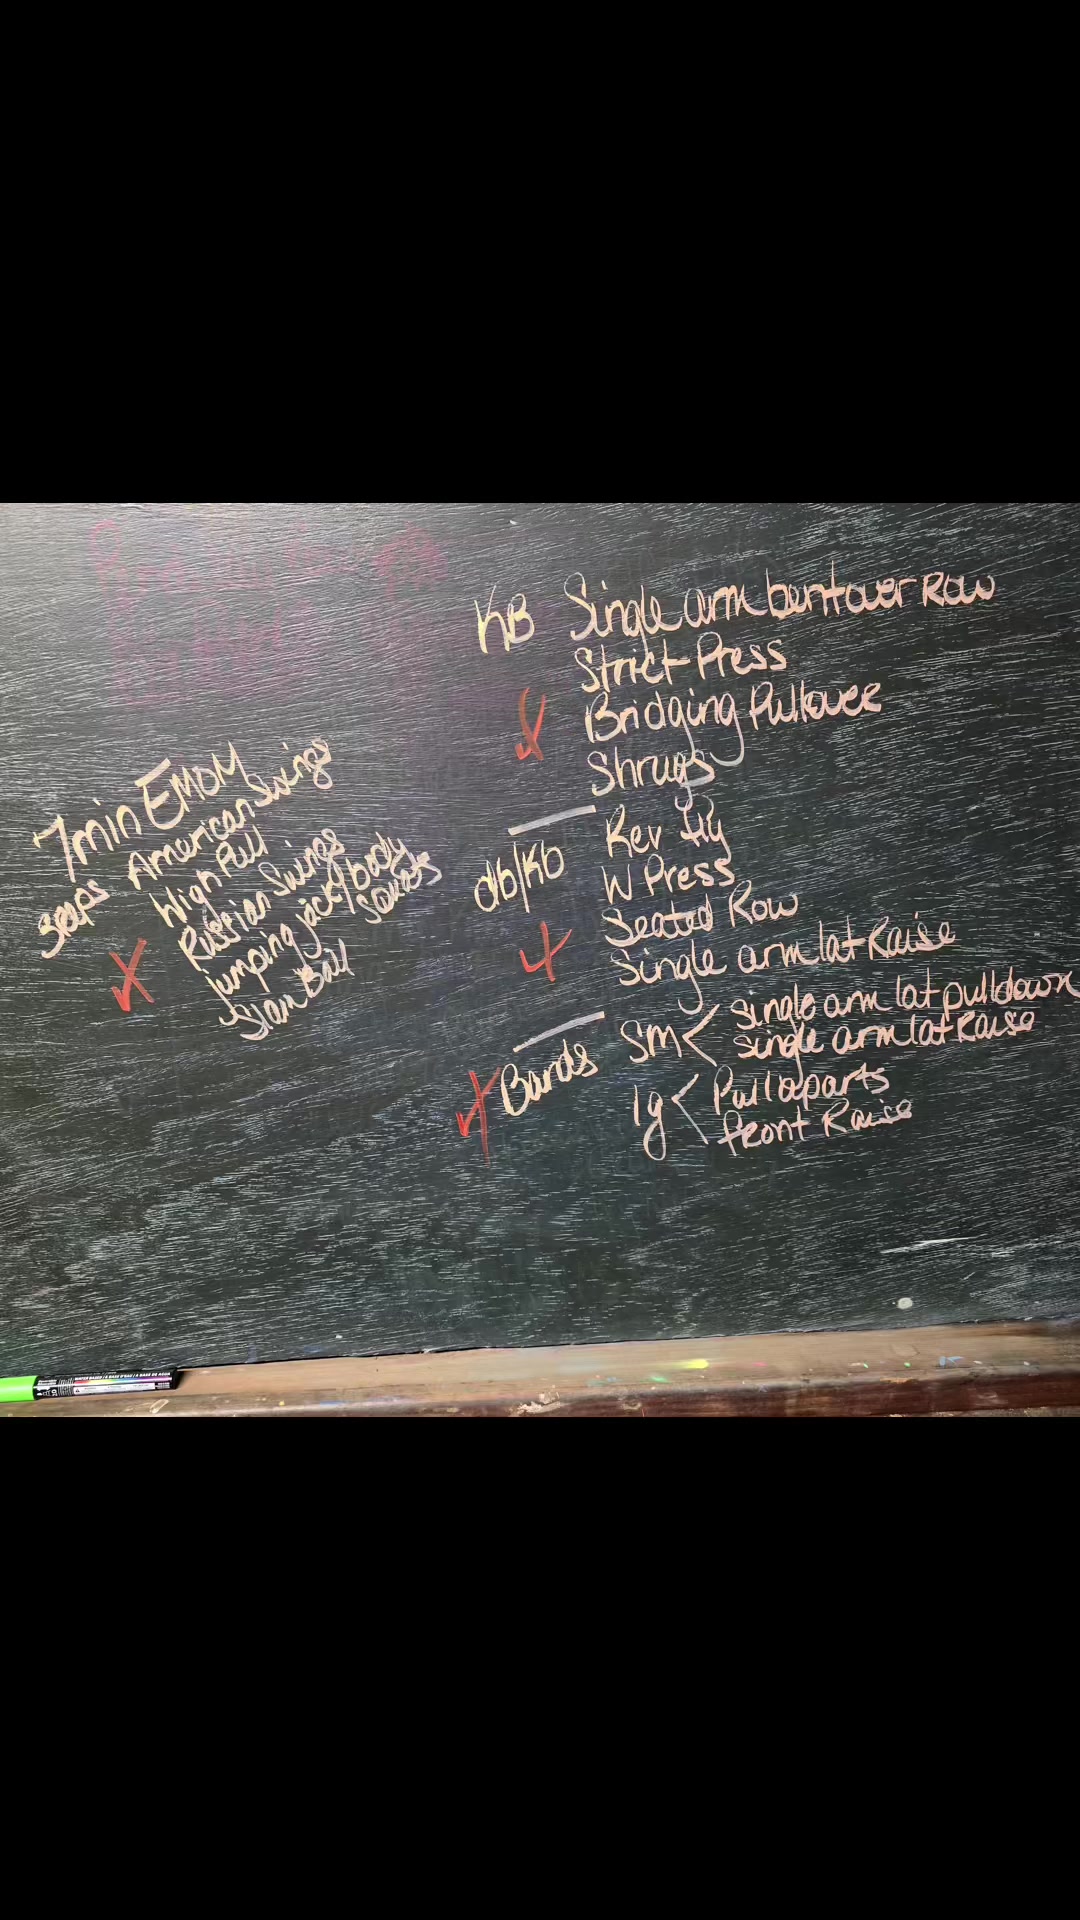 7min EMOM
American Swings
High Pull
Russian Swings
jumping jack/body
squats
Slam Ball
KB Single arm bentover Row
Strict Press
Bridging Pullover
Shrugs
db/Kb Rev fly
W Press
Seated Row
Single arm lat Raise
Bands SM < single arm lat pulldown
single arm lat Raise
lg < Pull aparts
front Raise